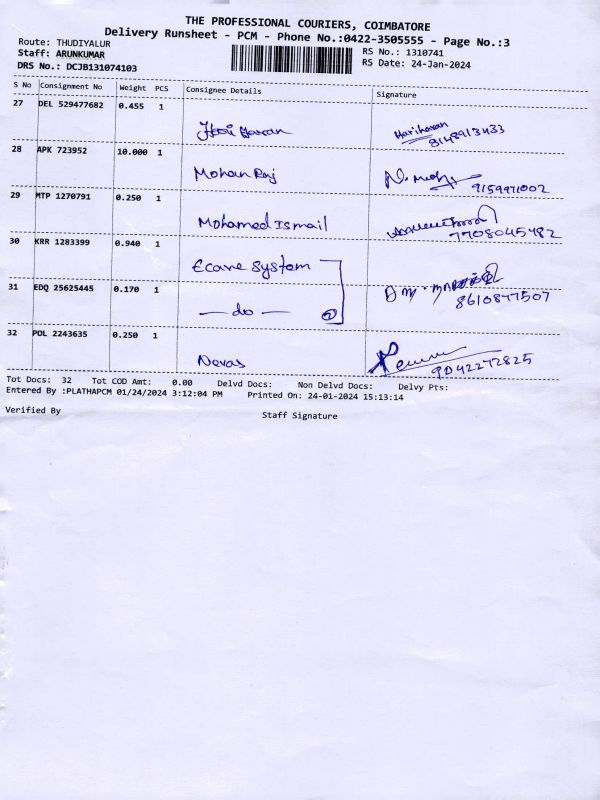 THE PROFESSIONAL COURIERS, COIMBATORE
Delivery Runsheet - PCM - Phone No.:0422-3505555 - Page No.:3
Route: THUDIYALUR
RS No.: 1310741
Staff: ARUNKUMAR
RS Date: 24-Jan-2024
DRS No.: DCJB131074103
S No Consignment No Weight PCS Consignee Details Signature
27 DEL 529477682 0.455 1
Hari Haran Hariharan
8148913433
28 APK 723952 10.000 1
Mohan Raj 9159971002
29 MTP 1270791 0.250 1
Mohamed Ismail 7708045482
30 KRR 1283399 0.940 1
Ecane System
31 EDQ 25625445 0.170 1
— do — 2 8610877507
32 POL 2243635 0.250 1
Navas 9042272825
Tot Docs: 32 Tot COD Amt: 0.00 Delvd Docs: Non Delvd Docs: Delvy Pts:
Entered By :PLATHAPCM 01/24/2024 3:12:04 PM Printed On: 24-01-2024 15:13:14
Verified By Staff Signature